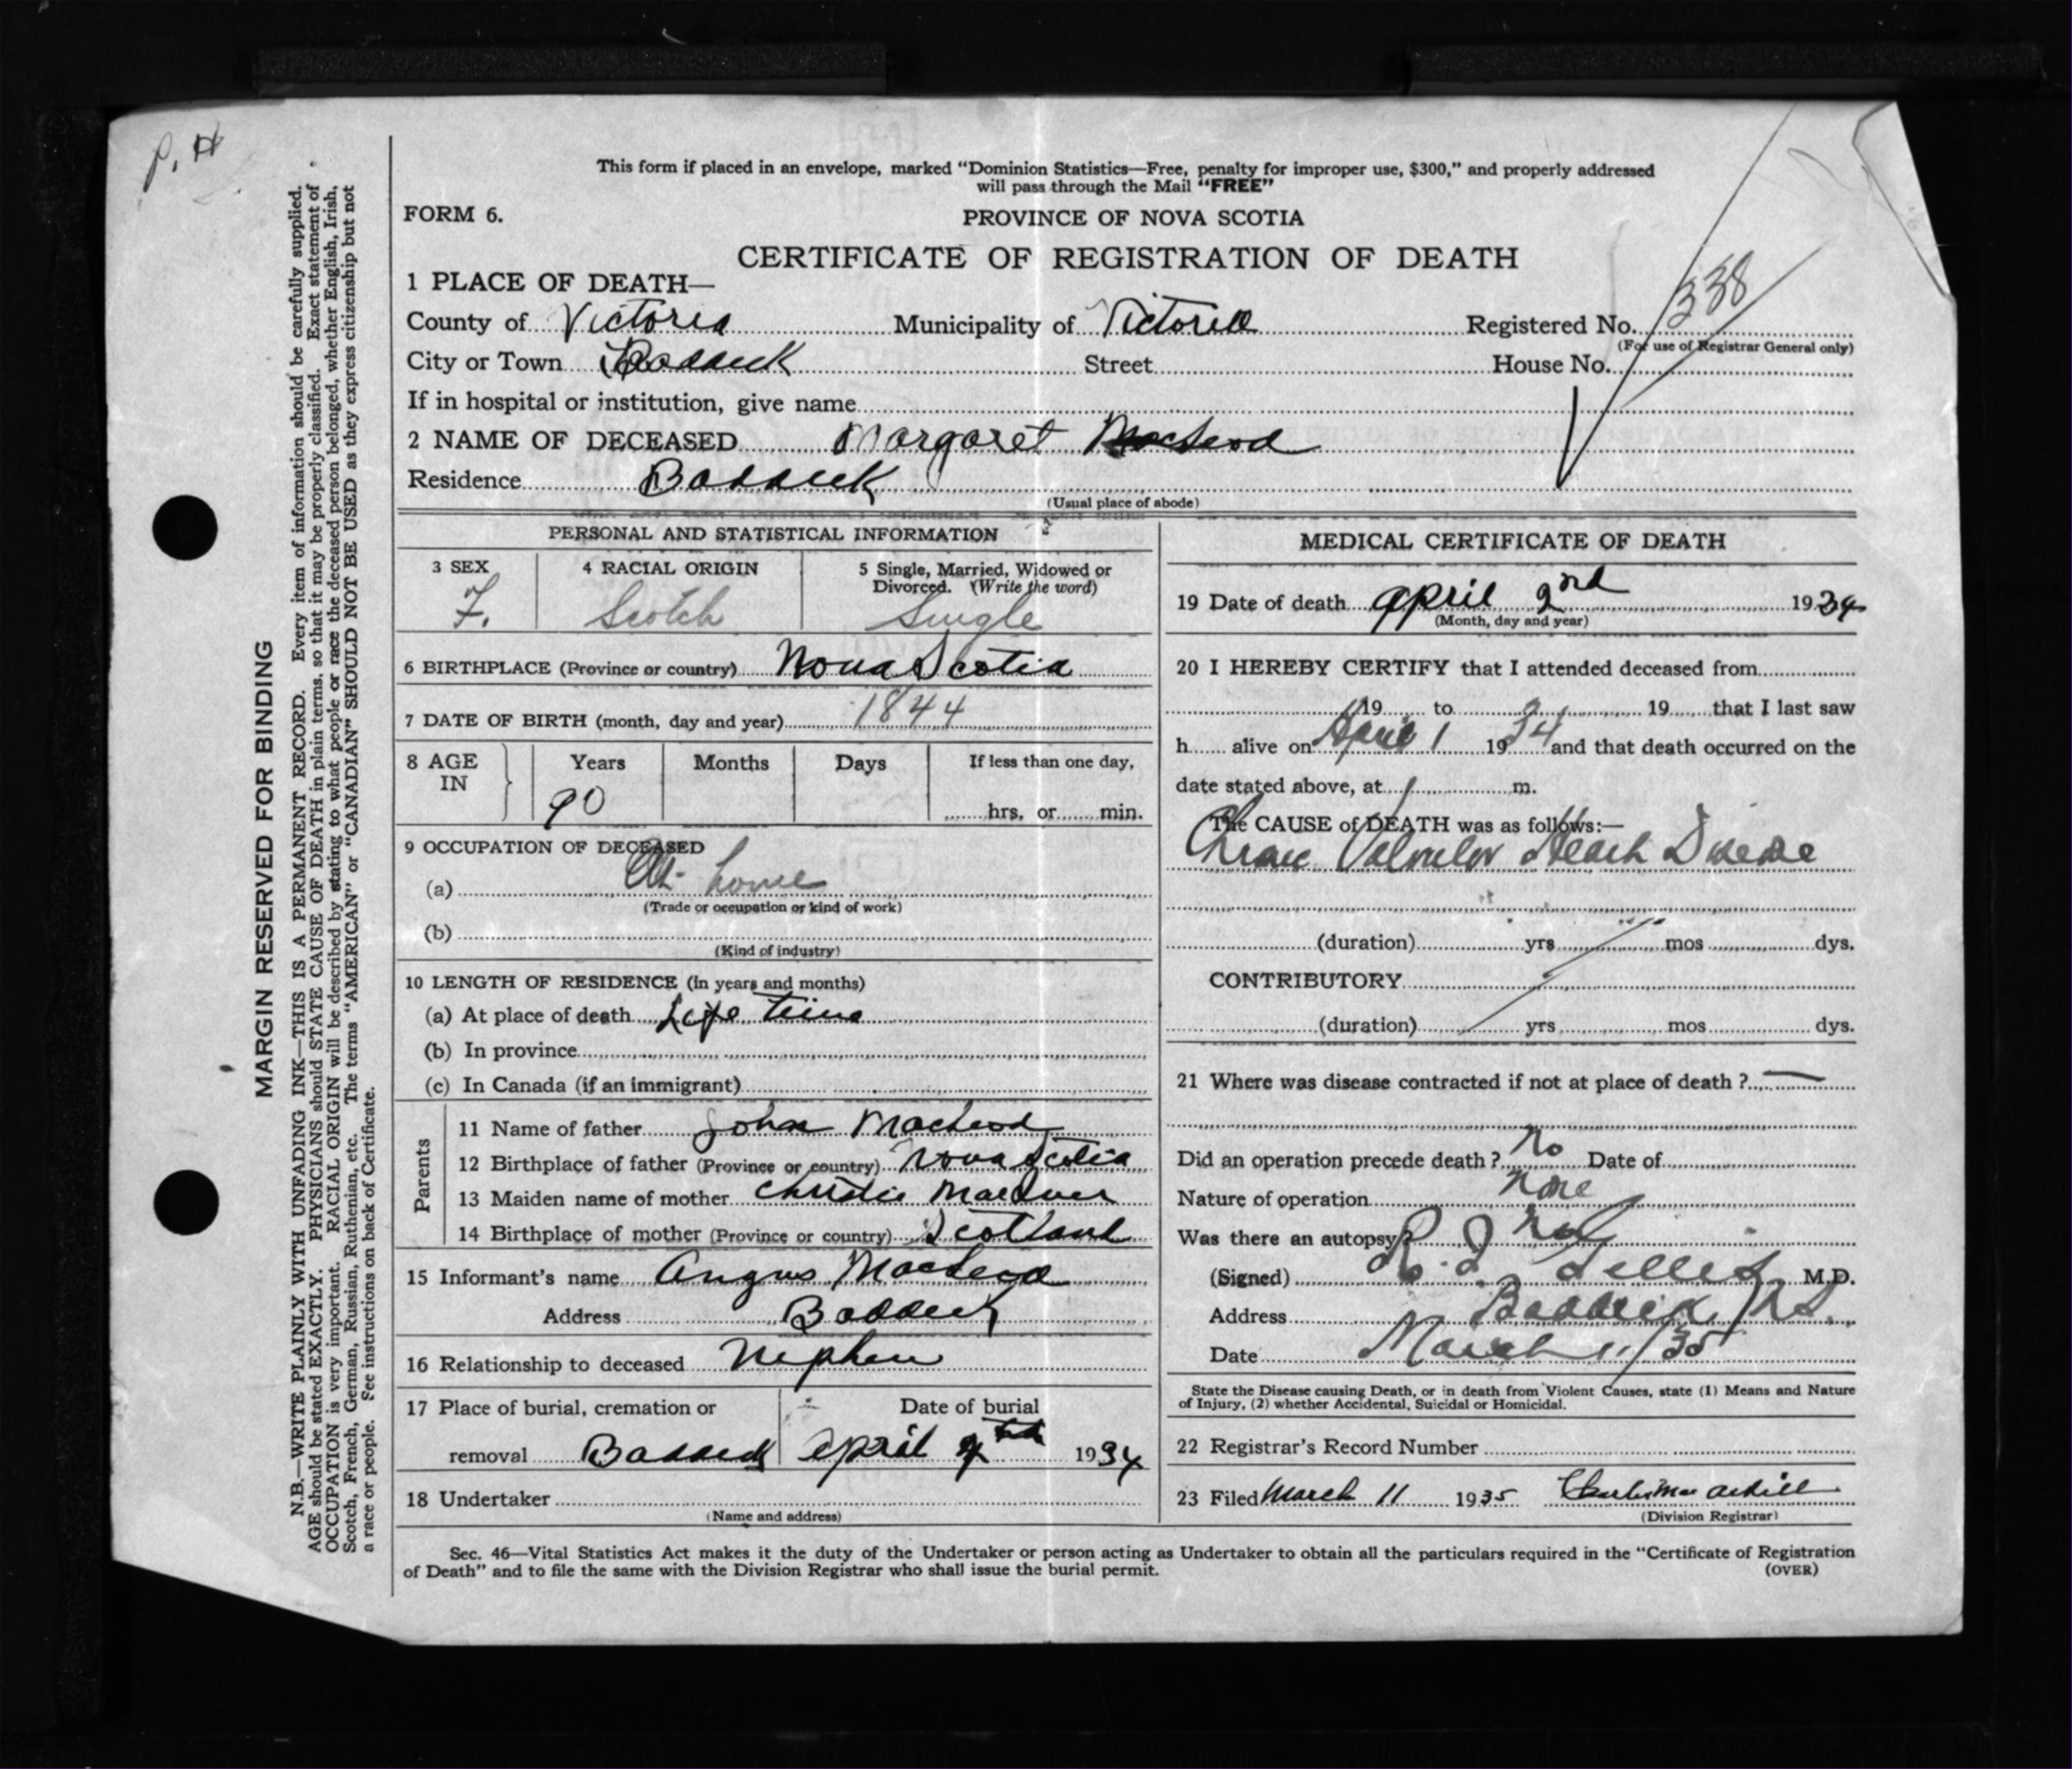 P. H
This form if placed in an envelope, marked “Dominion Statistics—Free, penalty for improper use, $300,” and properly addressed
will pass through the Mail “FREE”
FORM 6.
PROVINCE OF NOVA SCOTIA
CERTIFICATE OF REGISTRATION OF DEATH
1 PLACE OF DEATH—
County of Victoria Municipality of Victoria Registered No. 338
(For use of Registrar General only)
City or Town Baddeck Street House No.
If in hospital or institution, give name
2 NAME OF DECEASED Margaret MacLeod
Residence Baddeck
(Usual place of abode)
PERSONAL AND STATISTICAL INFORMATION
3 SEX 4 RACIAL ORIGIN 5 Single, Married, Widowed or
Divorced. (Write the word)
F. Scotch Single
6 BIRTHPLACE (Province or country) Nova Scotia
7 DATE OF BIRTH (month, day and year) 1844
8 AGE Years Months Days If less than one day,
IN 90 hrs, or min.
9 OCCUPATION OF DECEASED
(a) At home
(Trade or occupation or kind of work)
(b)
(Kind of industry)
10 LENGTH OF RESIDENCE (in years and months)
(a) At place of death Life time
(b) In province
(c) In Canada (if an immigrant)
Parents
11 Name of father John MacLeod
12 Birthplace of father (Province or country) Nova Scotia
13 Maiden name of mother Christie MacIver
14 Birthplace of mother (Province or country) Scotland
15 Informant's name Angus MacLeod
Address Baddeck
16 Relationship to deceased Nephew
17 Place of burial, cremation or Date of burial
removal Baddeck April 4th 1934
18 Undertaker
(Name and address)
MEDICAL CERTIFICATE OF DEATH
19 Date of death April 2nd 1934
(Month, day and year)
20 I HEREBY CERTIFY that I attended deceased from
19 to 19 that I last saw
h alive on April 1 1934 and that death occurred on the
date stated above, at 1 m.
The CAUSE of DEATH was as follows:—
Chronic Valvular Heart Disease
(duration) yrs mos dys.
CONTRIBUTORY
(duration) yrs mos dys.
21 Where was disease contracted if not at place of death ? —
Did an operation precede death ? No Date of
Nature of operation None
Was there an autopsy? No
(Signed) M.D.
Address Baddeck, N.S.
Date March 11/35
State the Disease causing Death, or in death from Violent Causes, state (1) Means and Nature
of Injury, (2) whether Accidental, Suicidal or Homicidal.
22 Registrar's Record Number
23 Filed March 11 1935
(Division Registrar)
Sec. 46—Vital Statistics Act makes it the duty of the Undertaker or person acting as Undertaker to obtain all the particulars required in the “Certificate of Registration
of Death” and to file the same with the Division Registrar who shall issue the burial permit. (OVER)
MARGIN RESERVED FOR BINDING
N.B.—WRITE PLAINLY WITH UNFADING INK—THIS IS A PERMANENT RECORD. Every item of information should be carefully supplied.
AGE should be stated EXACTLY. PHYSICIANS should STATE CAUSE OF DEATH in plain terms, so that it may be properly classified. Exact statement of
OCCUPATION is very important. RACIAL ORIGIN will be described by stating to what people or race the deceased person belonged, whether English, Irish,
Scotch, French, German, Russian, Ruthenian, etc. The terms “AMERICAN” or “CANADIAN” SHOULD NOT BE USED as they express citizenship but not
a race or people. See instructions on back of Certificate.